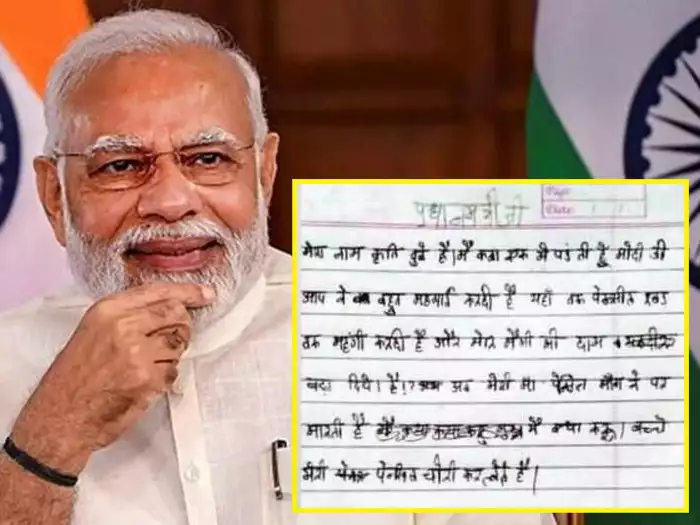 प्रधानमंत्री जी
Page:
Date: / /
मेरा नाम कृति दुबे है। मैं कक्षा एक में पढ़ती हूँ मोदी जी
आप ने बहुत महगाई करदी है यहाँ तक पेन्सील रबड़
तक महंगी करदी है और मेरी मैगी की दाम
बढ़ा दिये है। अब मेरी माँ पेंसिल माँगने पर
मारती है मैं क्या करू। बच्चे
मेरी पेन्सिल चोरी कर लेते है।